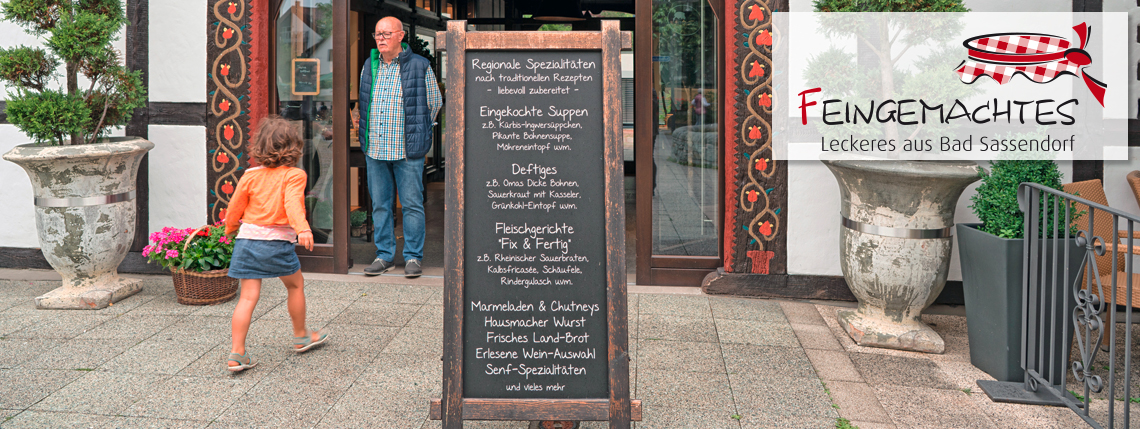 Regionale Spezialitäten
nach traditionellen Rezepten
- liebevoll zubereitet -
Eingekochte Suppen
z.B. Kürbis-Ingwersüppchen,
Pikante Bohnensuppe,
Möhreneintopf uvm.
Deftiges
z.B. Omas Dicke Bohnen,
Sauerkraut mit Kasseler,
Grünkohl-Eintopf uvm.
Fleischgerichte
"Fix & Fertig"
z.B. Rheinischer Sauerbraten,
Kalbsfricasée, Schäufele,
Rindergulasch uvm.
Marmeladen & Chutneys
Hausmacher Wurst
Frisches Land-Brot
Erlesene Wein-Auswahl
Senf-Spezialitäten
und vieles mehr
FEINGEMACHTES
Leckeres aus Bad Sassendorf